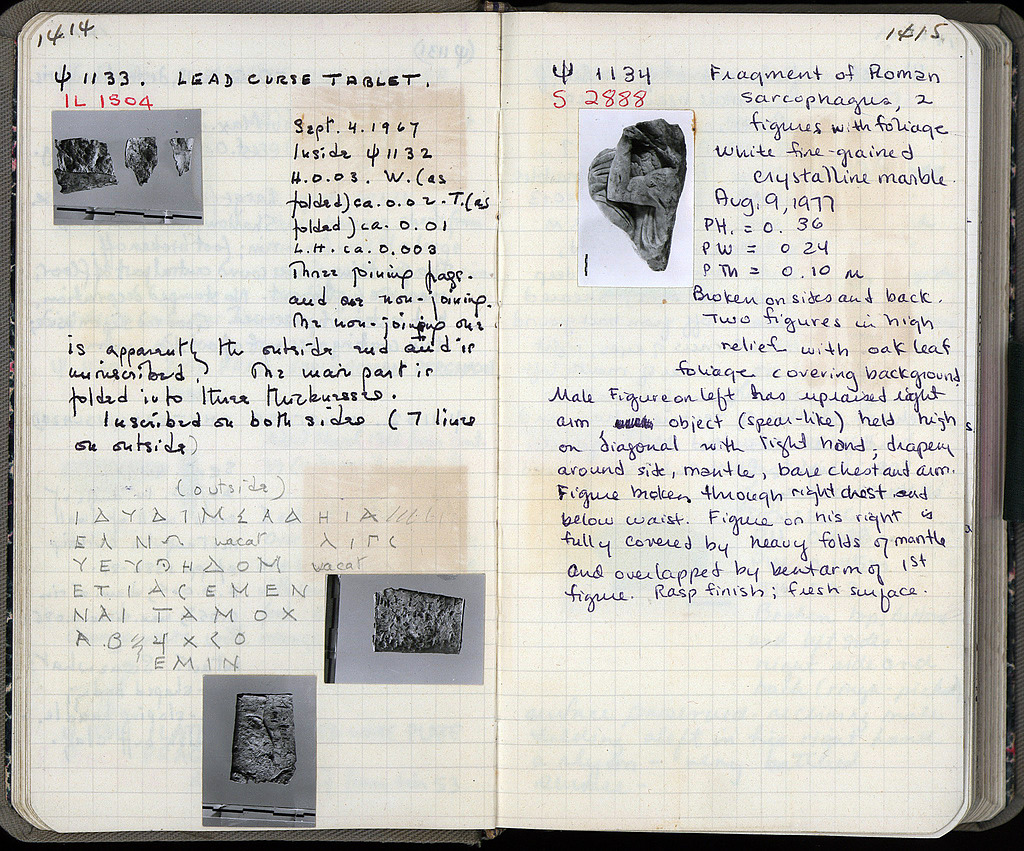 1414
Ψ 1133. LEAD CURSE TABLET.
IL 1804
Sept. 4. 1967
Inside Ψ 1132
H. 0.03. W. (as
folded) ca. 0.02 - T. (as
folded) ca. 0.01
L.H. ca. 0.003
Three joining frags.
and one non-joining.
The non-joining one
is apparently the outside and is
uninscribed? The main part is
folded into three thicknesses.
Inscribed on both sides (7 lines
on outside)
(outside)
Ι Δ Υ Δ Ι Μ Σ Α Δ Η Ι Α
Ε Λ Ν vacat Λ Ι Γ
Υ Ε Υ Η Δ Ο Μ vacat
Ε Τ Ι Α Ϲ Ε Μ Ε Ν
Ν Α Ι Τ Α Μ Ο Χ
Α . Β Χ Ο
Ε Μ Ι Ν
1415
Ψ 1134 Fragment of Roman
S 2888 sarcophagus, 2
figures with foliage
White fine-grained
crystalline marble.
Aug. 9, 1977
PH. = 0. 36
PW = 0 24
P Th = 0.10 m
Broken on sides and back.
Two figures in high
relief with oak leaf
foliage covering background.
Male Figure on left has upraised right
arm object (spear-like) held high
on diagonal with right hand; drapery
around side, mantle, bare chest and arm.
Figure broken through right chest and
below waist. Figure on his right is
fully covered by heavy folds of mantle
and overlapped by bent arm of 1st
figure. Rasp finish; fresh surface.